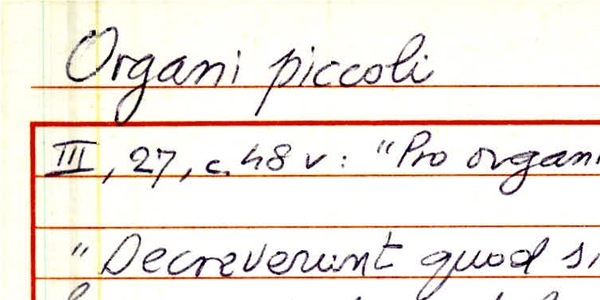 Organi piccoli
III, 27, c. 48 v: "Pro organi
"Decreverunt quod si